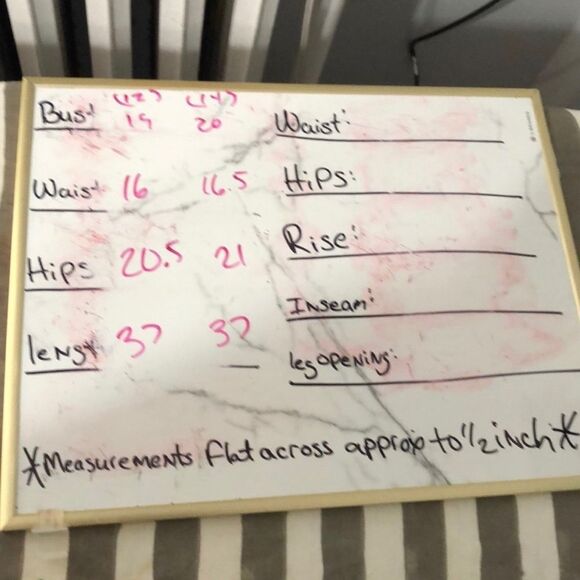 (12) (14)
Bust 19 20
Waist 16 16.5
Hips 20.5 21
lengt 37 37
Waist:
Hips:
Rise:
Inseam:
leg opening:
*Measurements flat across approx to 1/2 inch*